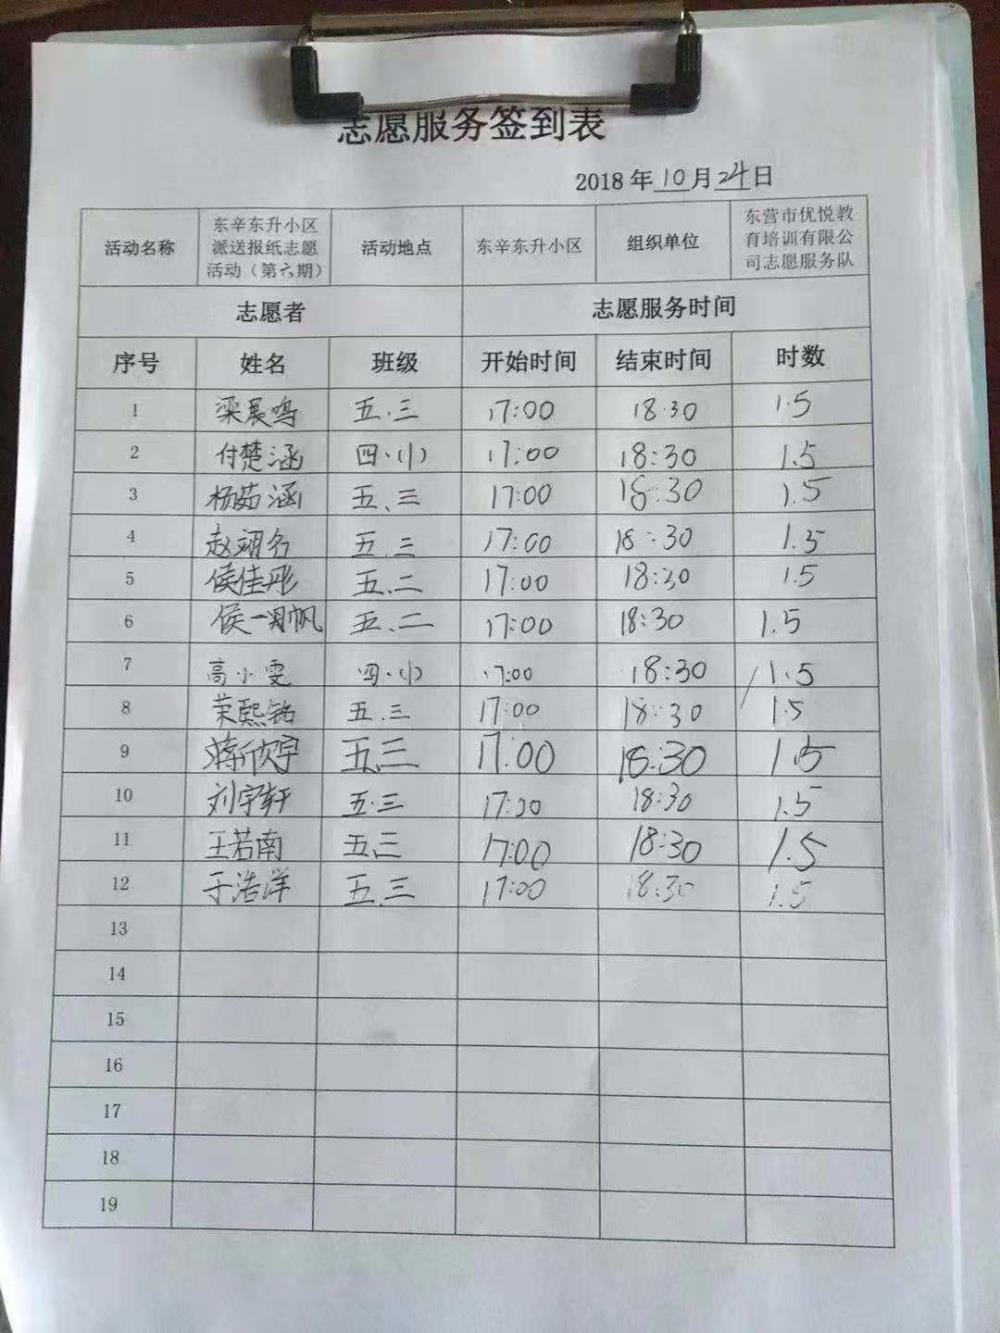 志愿服务签到表
2018年10月24日
活动名称 东辛东升小区派送报纸志愿活动（第六期） 活动地点 东辛东升小区 组织单位 东营市优悦教育培训有限公司志愿服务队
志愿者 志愿服务时间
序号 姓名 班级 开始时间 结束时间 时数
1 梁晨鸣 五.三 17:00 18:30 1.5
2 付楚涵 四.(1) 17:00 18:30 1.5
3 杨茹涵 五.三 17:00 18:30 1.5
4 赵翊名 五.三 17:00 18:30 1.5
5 侯佳彤 五.二 17:00 18:30 1.5
6 侯一帆 五.二 17:00 18:30 1.5
7 高小雯 四.(1) 17:00 18:30 1.5
8 荣熙铭 五.三 17:00 18:30 1.5
9 蒋欣宇 五.三 17:00 18:30 1.5
10 刘宇轩 五.三 17:00 18:30 1.5
11 王若南 五.三 17:00 18:30 1.5
12 于浩洋 五.三 17:00 18:30 1.5
13
14
15
16
17
18
19